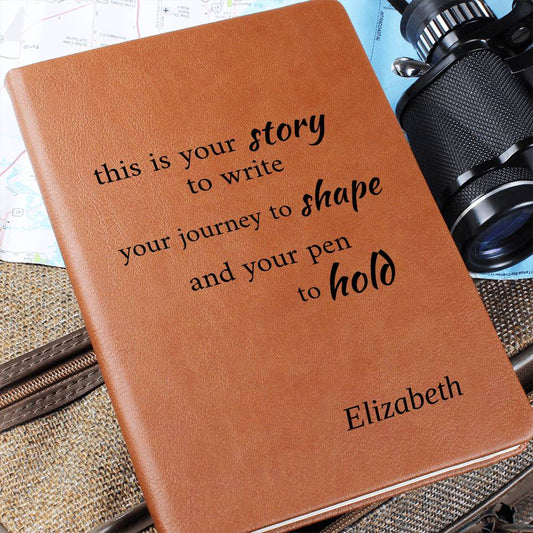 this is your story
to write
your journey to shape
and your pen
to hold
Elizabeth